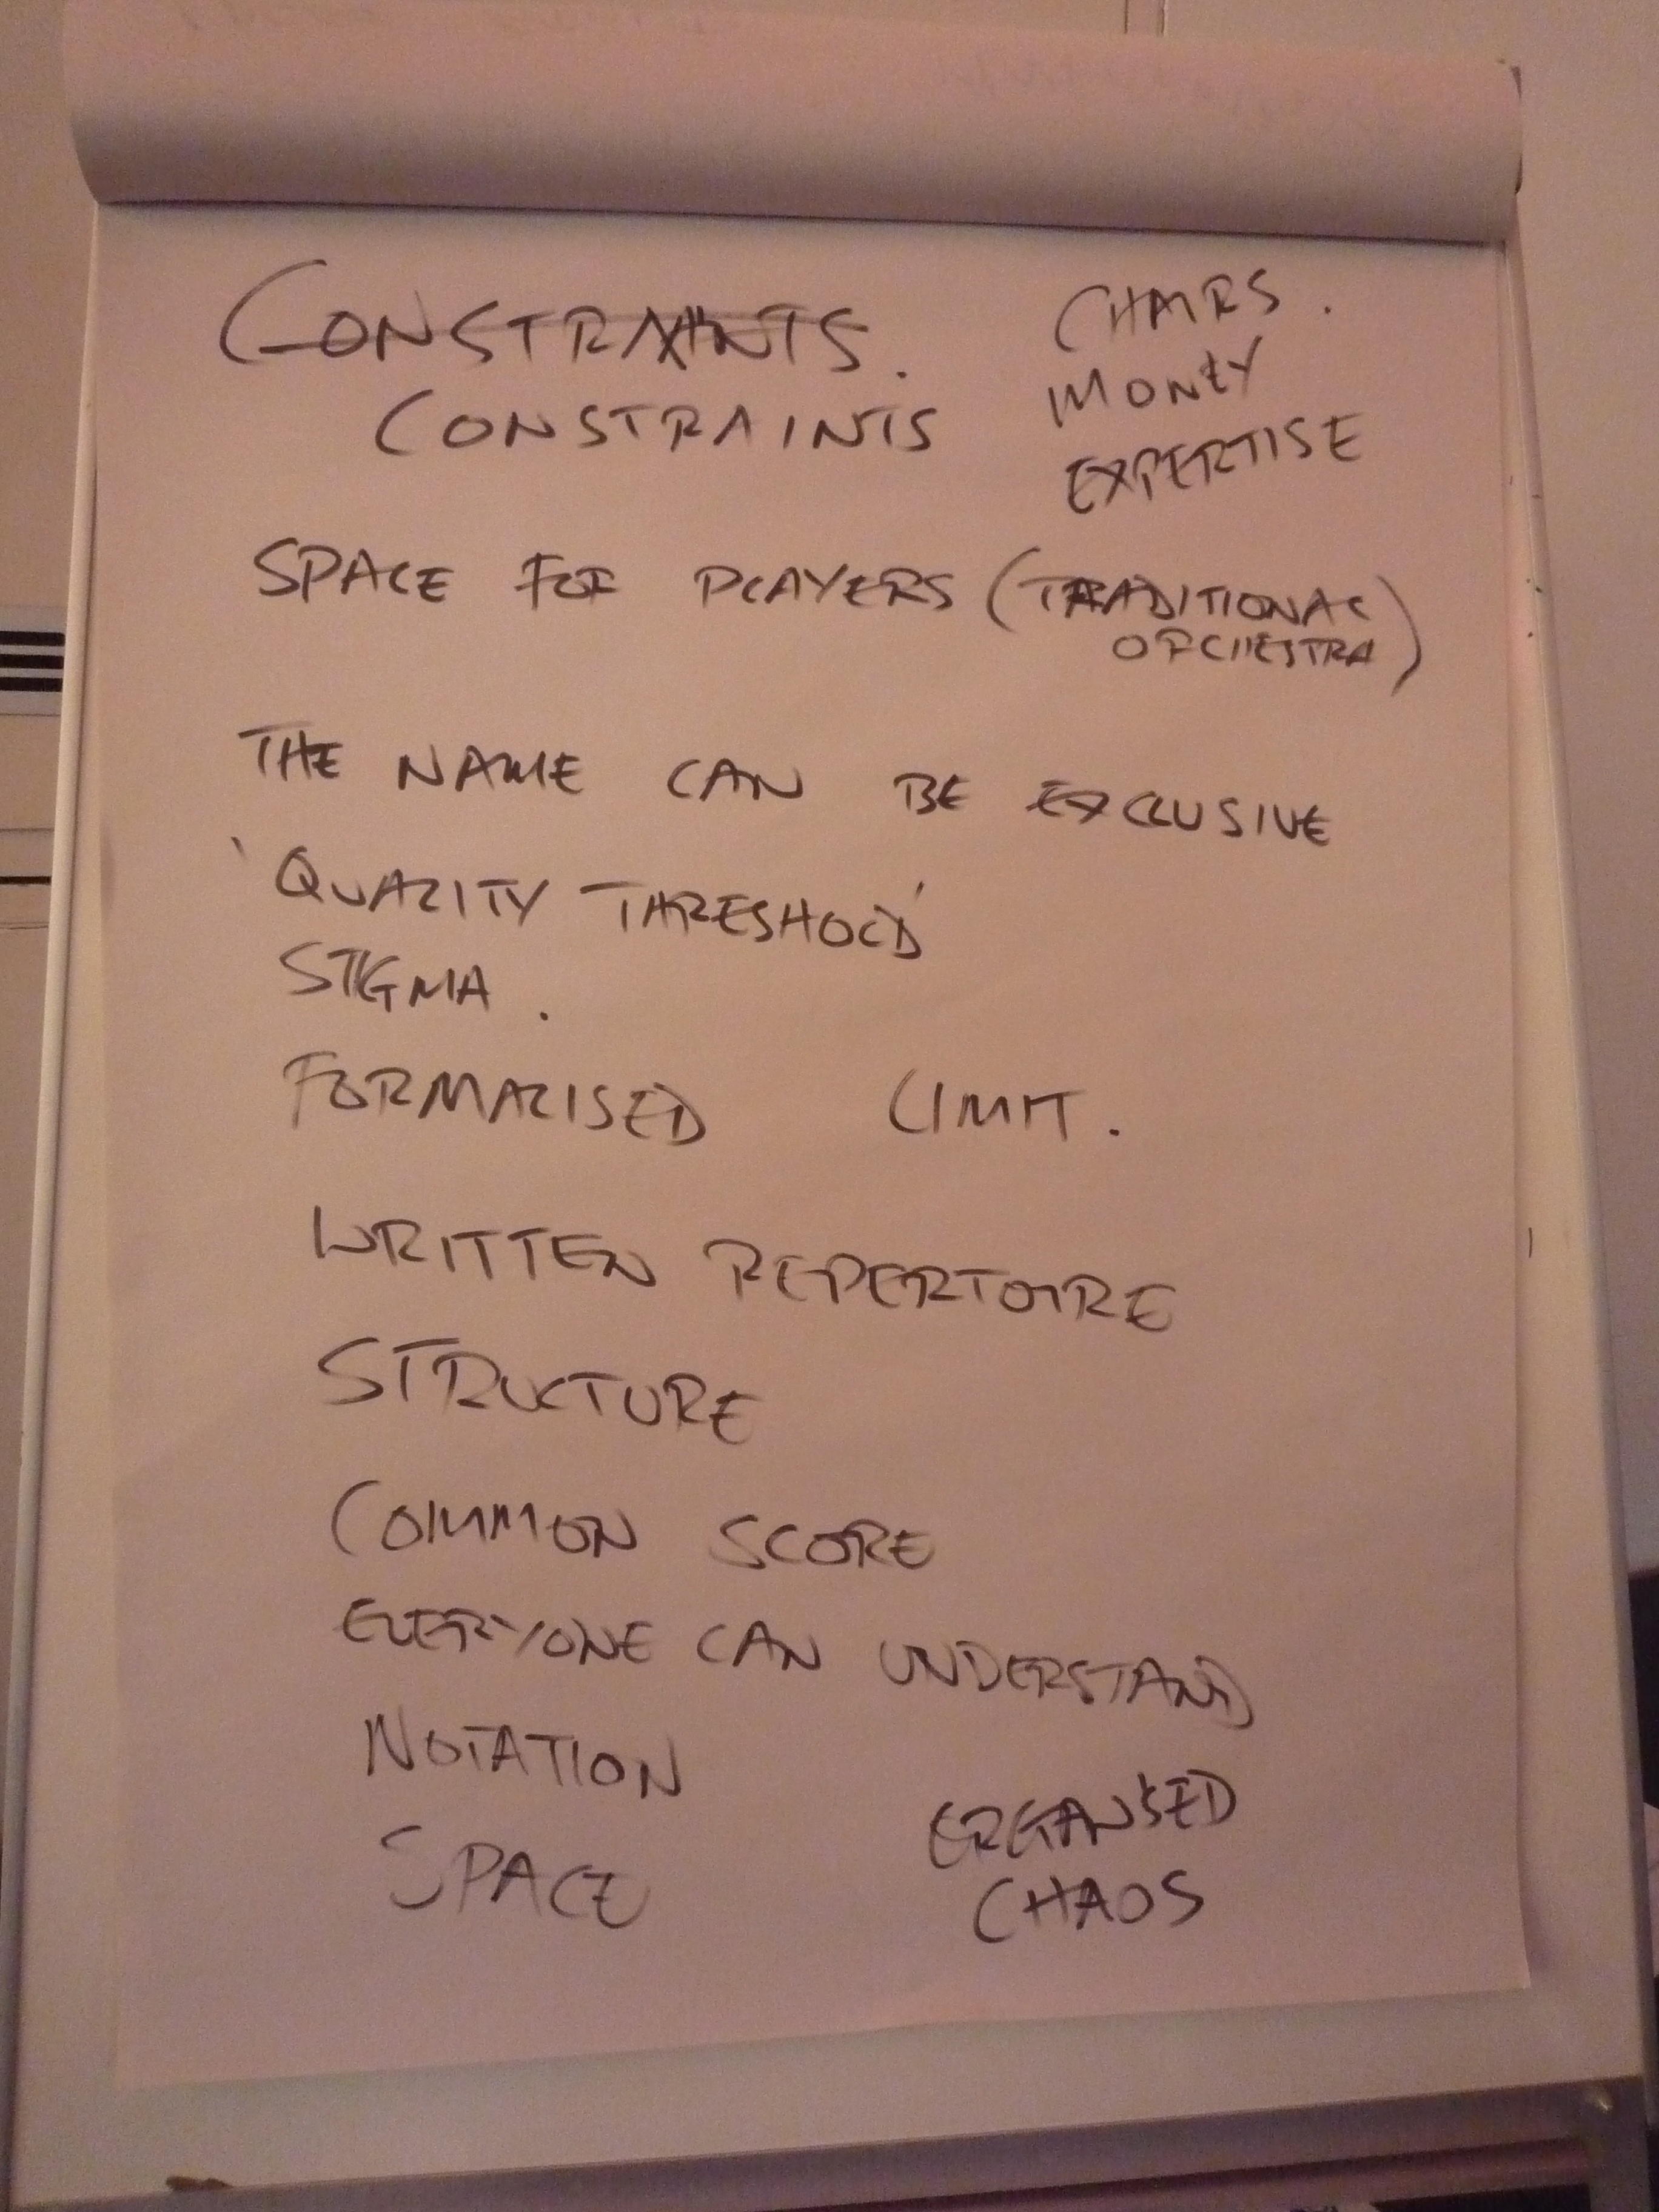 CONSTRAINTS.
CONSTRAINTS
CHAIRS.
MONEY
EXPERTISE
SPACE FOR PLAYERS (TRADITIONAL
ORCHESTRA)
THE NAME CAN BE EXCLUSIVE
'QUALITY THRESHOLD'
STIGMA.
FORMALISED LIMIT.
WRITTEN REPERTOIRE
STRUCTURE
COMMON SCORE
EVERYONE CAN UNDERSTAND
NOTATION
SPACE
ORGANISED
CHAOS